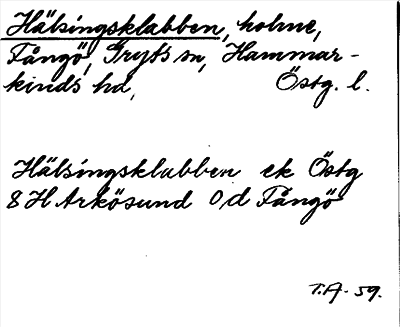 Hälsingsklabben, holme,
Fångö, Gryts sn, Hammar-
kinds hd, Östg. l.
Hälsingsklabben ek Östg
8H Arkösund 0d Fångö
T.A. 59.